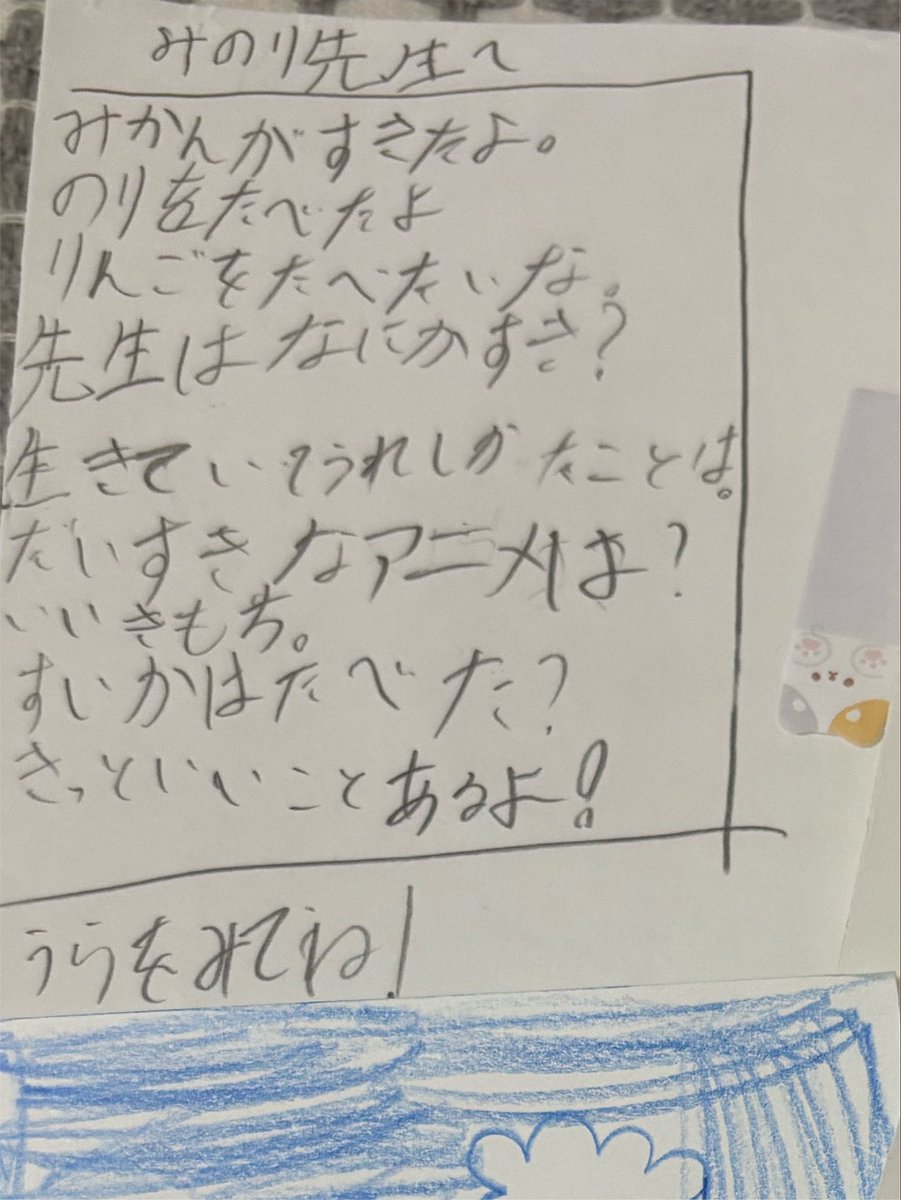 みのり先生へ
みかんがすきたよ。
のりをたべたよ
りんごをたべたいな。
先生はなにかすき?
生きていてうれしかたことは。
だいすきなアニメは?
いいきもち。
すいかはたべた?
きっといいことあるよ!
うらをみてね!